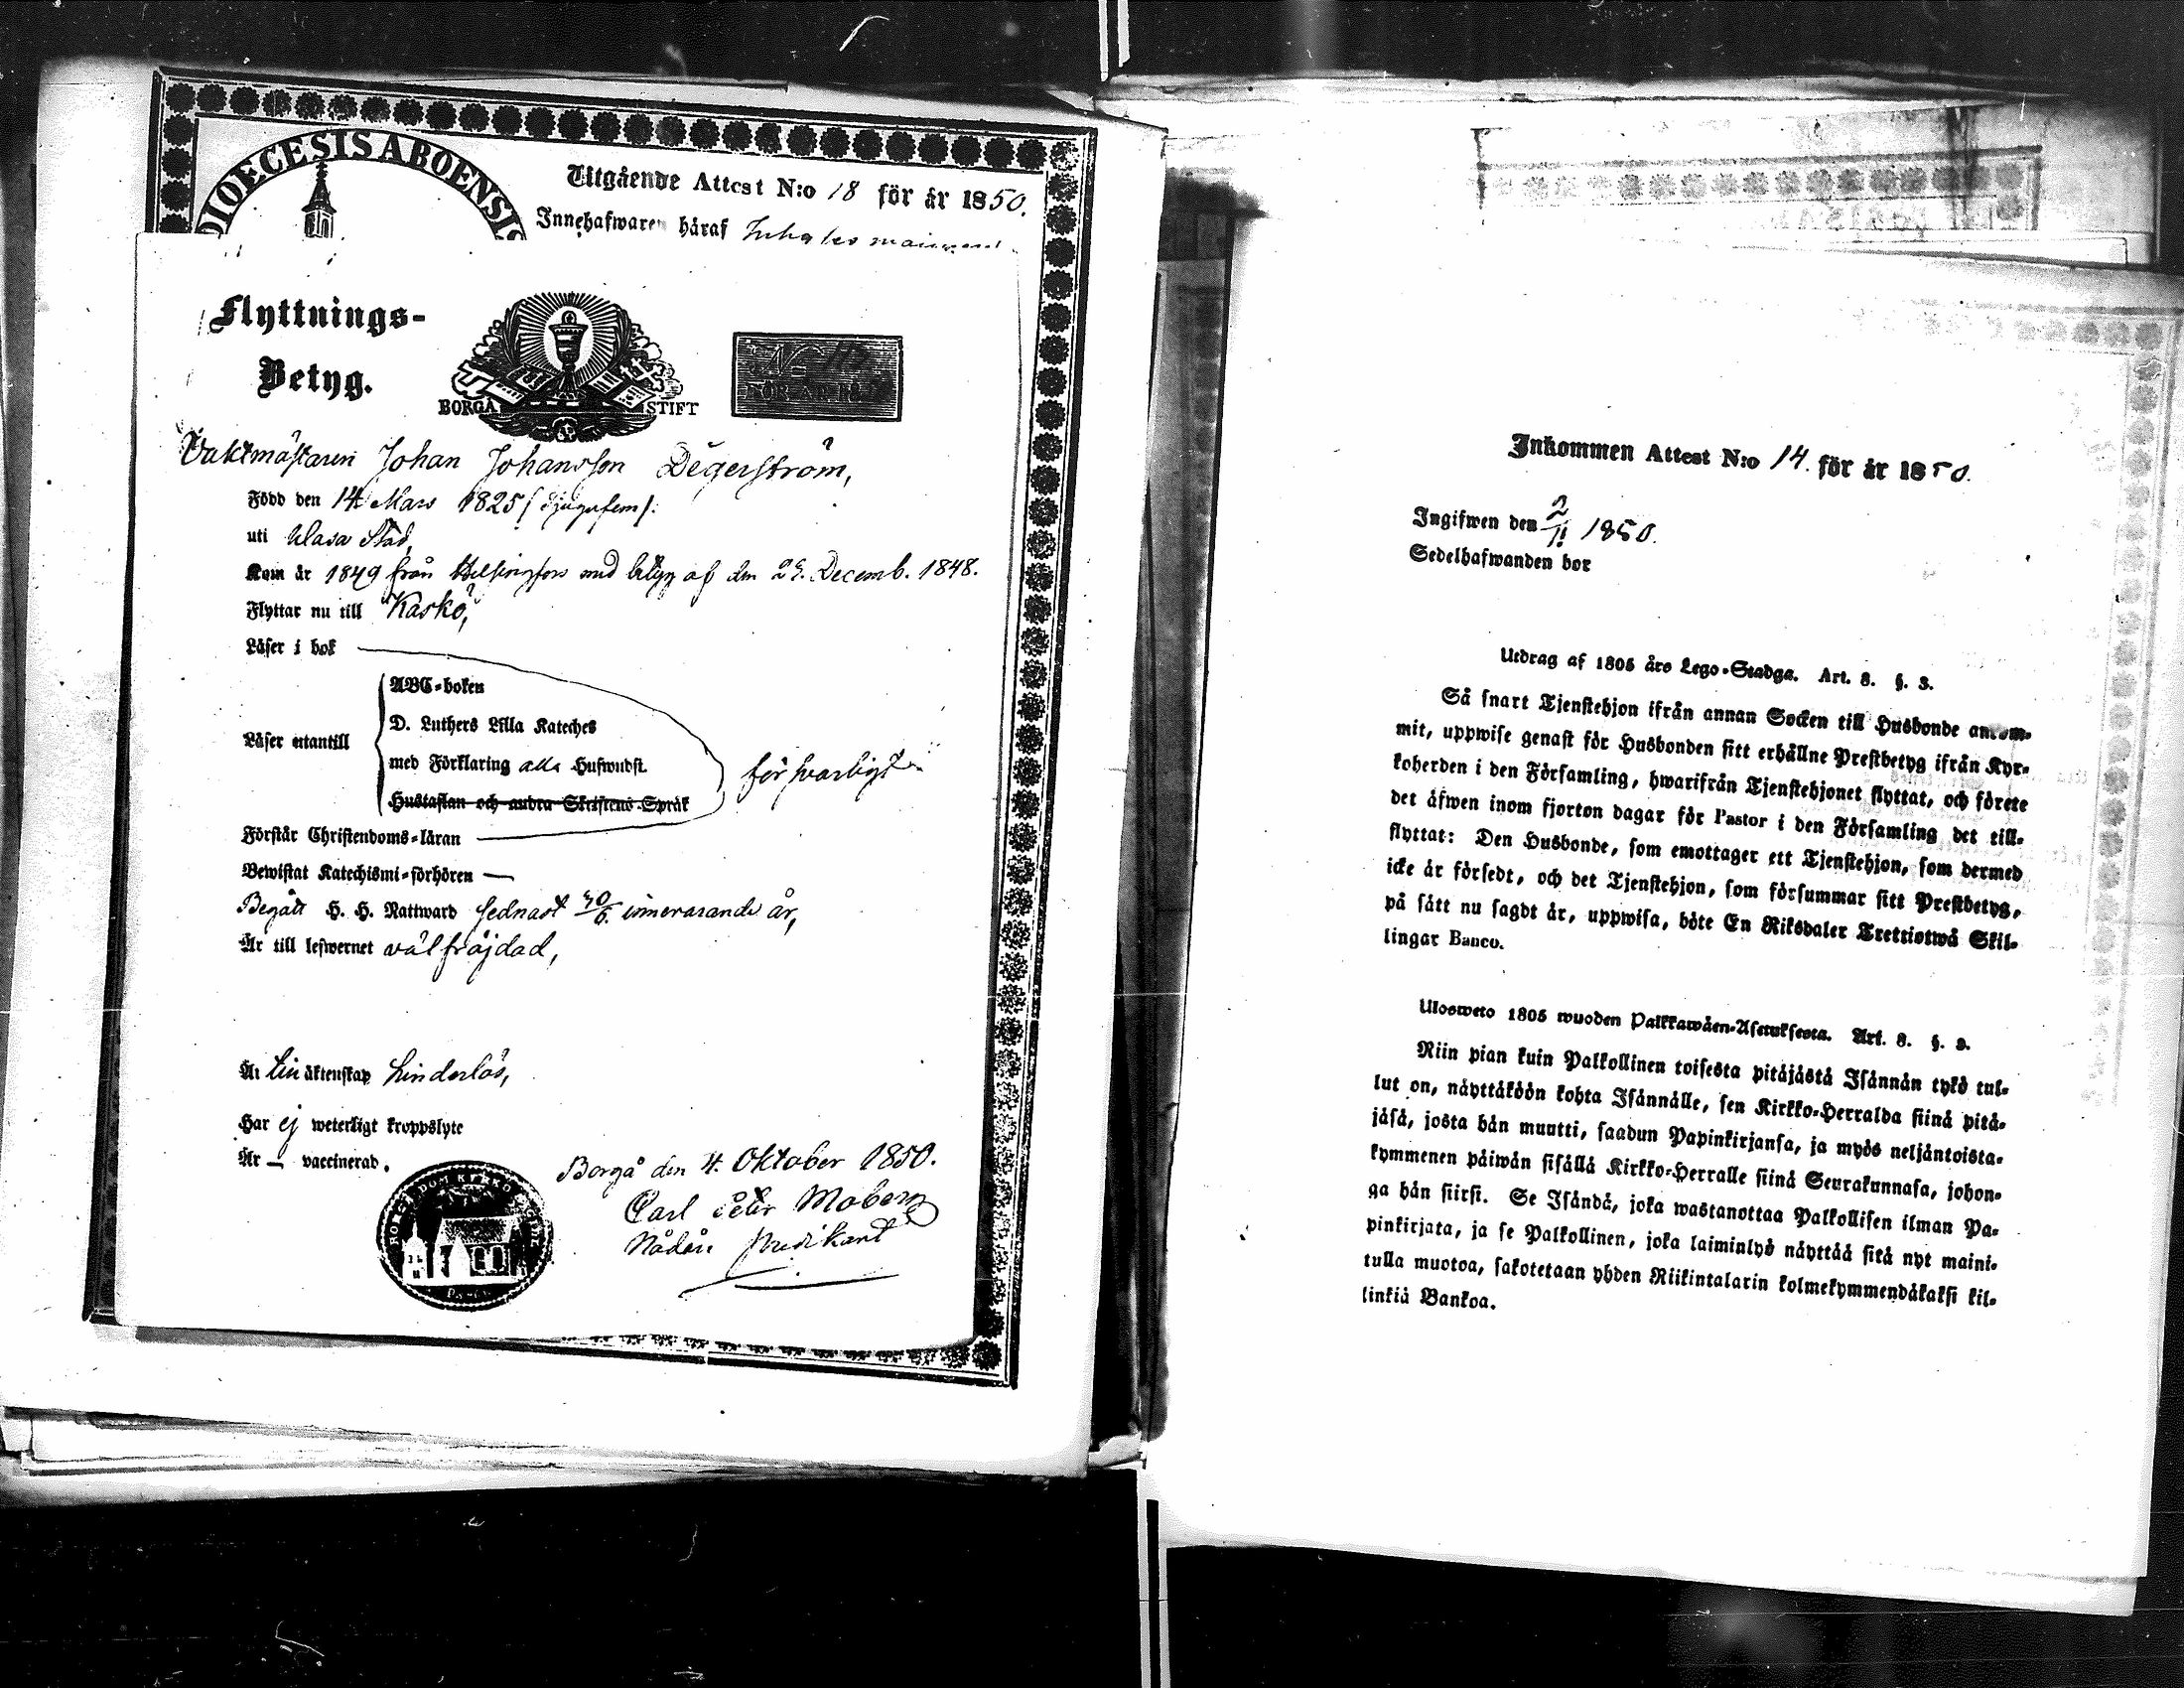 DIOECESIS ABOENSIS
Utgående Attest N:o 18 för år 1850.
Innehafwaren häraf
Flyttnings-
Betyg.
BORGÅ STIFT
Vaktmästaren Johan Johansson Degerström,
Född den 14 Mars 1825 /: tjugufem /:
uti Wasa Stad,
Kom år 1849 från Helsingfors med betyg af den 29. Decemb. 1848.
Flyttar nu till Kaskö,
Läser i bok
Läser utantill
ABC-boken
D. Luthers Lilla Kateches
med Förklaring alla Hufwudst.
Hustaflan och andra Skriftenes Språk
försvarligt
Förstår Christendoms-läran
Bewistat Katechismi-förhören —
Begått H. H. Nattward sednast 30/6 innevarande år,
Är till lefwernet välfräjdad,
Är till äktenskap hinderlös,
Har ej weterligt kroppslyte
Är — vaccinerad.
Borgå den 4. Oktober 1850.
Carl Petr Moberg
Nådårs Predikant
Inkommen Attest N:o 14. för år 1850.
Ingifwen den 2/11 1850.
Sedelhafwanden bor
Utdrag af 1805 års Lego-Stadga. Art. 8. §. 3.
Så snart Tjenstehjon ifrån annan Socken till Husbonde ankom-
mit, uppwise genast för Husbonden sitt erhållne Prestbetyg ifrån Kyr-
koherden i den Församling, hwarifrån Tjenstehjonet flyttat, och förete
det äfwen inom fjorton dagar för Pastor i den Församling det till-
flyttat: Den Husbonde, som emottager ett Tjenstehjon, som dermed
icke är försedt, och det Tjenstehjon, som försummar sitt Prestbetyg,
på sätt nu sagdt är, uppwisa, böte En Riksdaler Trettiotwå Skil-
lingar Banco.
Ulosweto 1805 wuoden Palkkawäen-Asetuksesta. Art. 8. §. 3.
Niin pian kuin Palkollinen toisesta pitäjästä Isännän tykö tul-
lut on, näyttäköön kohta Isännälle, sen Kirkko-Herralda siinä pitä-
jäsä, josta hän muutti, saadun Papinkirjansa, ja myös neljäntoista-
kymmenen päiwän sisällä Kirkko-Herralle siinä Seurakunnasa, johon-
ga hän siirsi. Se Isändä, joka wastanottaa Palkollisen ilman Pa-
pinkirjata, ja se Palkollinen, joka laiminlyö näyttää sitä nyt maini-
tulla muotoa, sakotetaan yhden Riikintalarin kolmekymmendäkaksi kil-
linkiä Bankoa.